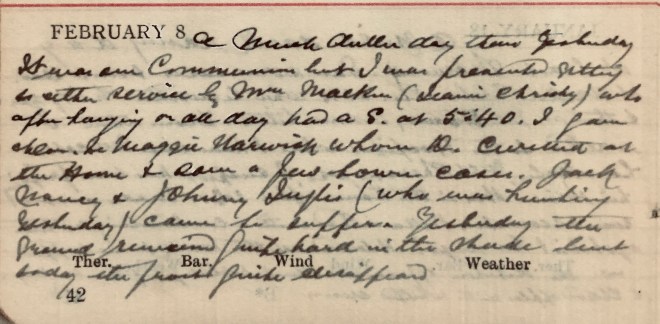 FEBRUARY 8 A Much duller day than Yesterday
It was our Communion but I was prevented getting
to either service by Mrs Mackie (Jeanie Christy) who
after hanging on all day had a S. at 5.40. I gave
chlor. to Maggie Warwick whom D. Curetted at
the Home & saw a few town cases. Jack
Nancy & Johnny Inglis (who was hunting
Yesterday) came to supper. Yesterday the
ground remained quite hard in the shade but
today the frost quite disappeared
Ther. Bar. Wind Weather
42